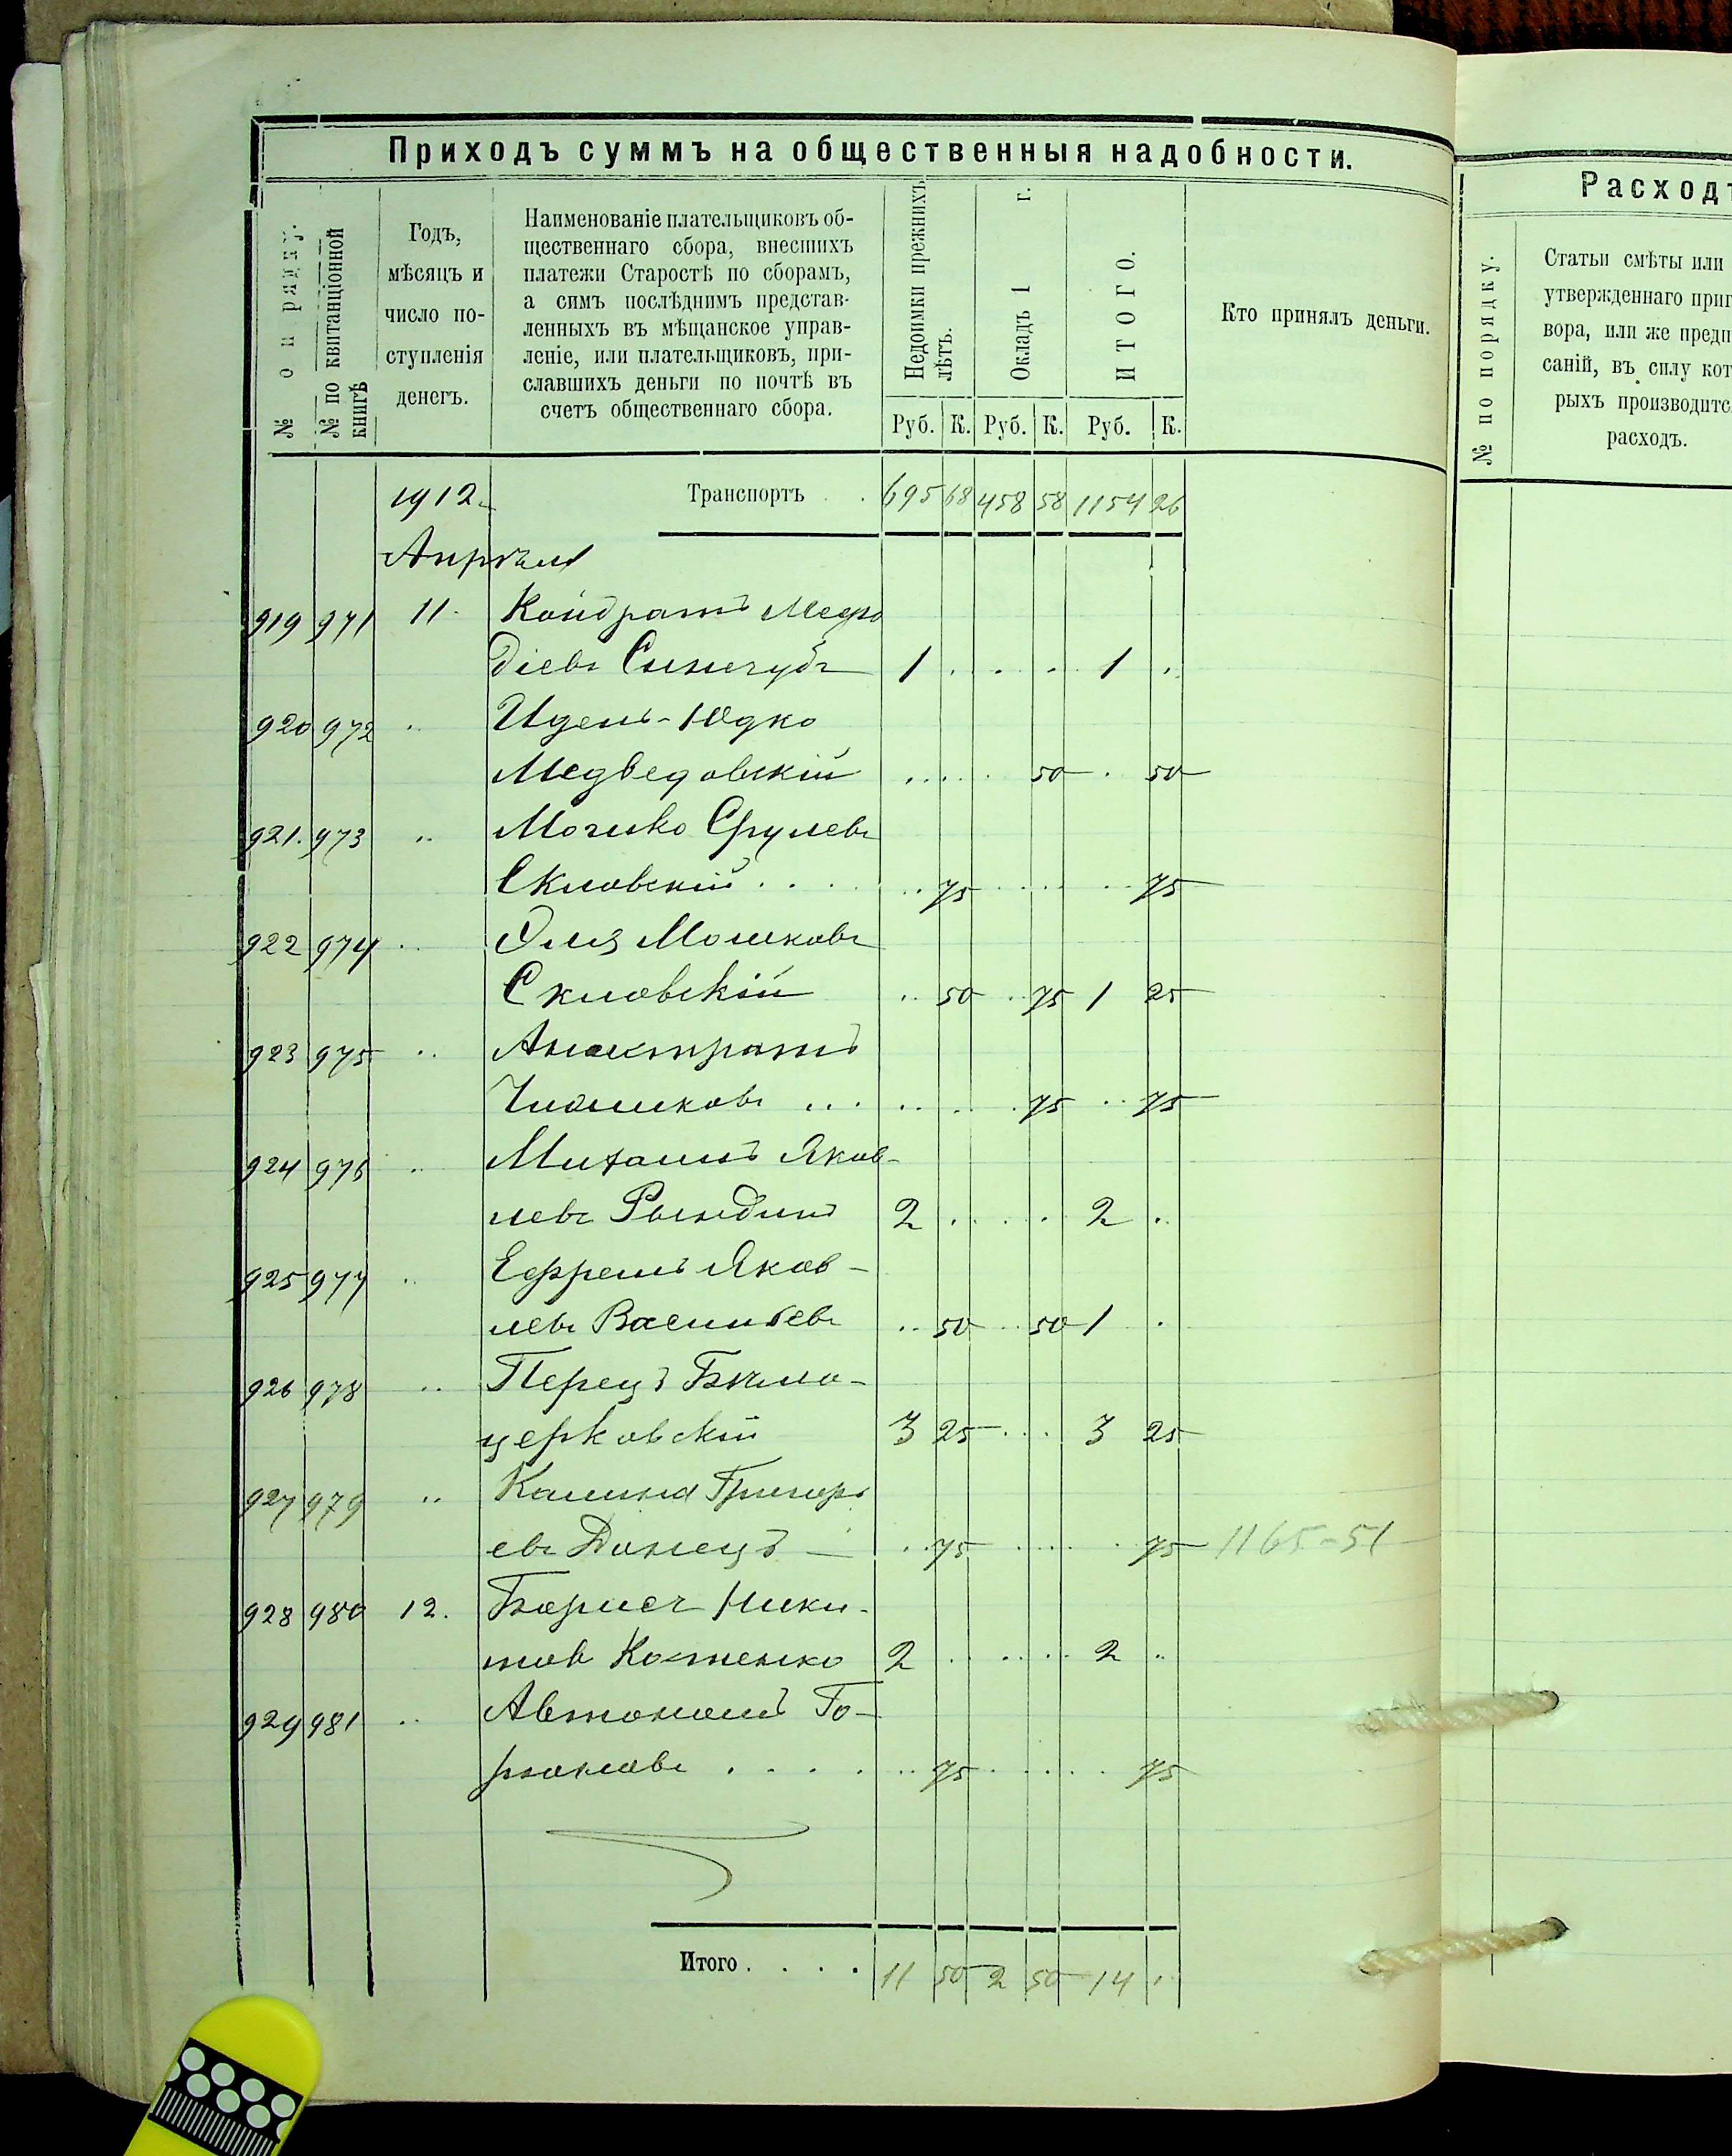 Приходъ суммъ на общественныя надобности.
№ по ряд
№ по квитанціонной
книгѣ
Годъ,
мѣсяцъ и
число по-
ступленія
денегъ.
Наименованіе плательщиковъ об-
щественнаго сбора, внесшихъ
платежи Старостѣ по сборамъ,
а симъ послѣднимъ представ-
ленныхъ въ мѣщанское управ-
леніе, или плательщиковъ, при-
славшихъ деньги по почтѣ въ
счетъ общественнаго сбора.
Недоимки прежнихъ
лѣтъ.
Окладъ 1 г.
ИТОГО.
Руб. К. Руб. К. Руб. К.
Кто принялъ деньги.
1912. Транспортъ . . 695 68 458 58 1154 26
Апрѣля
919 971 11. Кондратъ Мефо
діевъ Синегубъ 1 . . . . 1 .
920 972 .. Иденъ-Юдко
Медведовскій . . . . . 50 . 50
921. 973 .. Мошко Срулевъ
Скловскій . . . . .. 75 . . . . . . 75
922 974 .. Эля Мошковъ
Скловскій .. 50 .. 75 1 25
923 975 ..
... .. . . . 75 .. 75
924 976 .. Михаилъ Яков-
левъ Рындинъ 2 . . . . 2 ..
925 977 .. Ефремъ Яков-
левъ Васильевъ .. 50 .. 50 1 .
926 978 .. Перецъ Бѣло-
церковскій 3 25 . . . 3 25
927 979 .. Калина Григорь
евъ Донецъ — . . 75 . . . . . 75 1165-51
928 980 12. Борисъ Ники-
товъ Костенко 2 . . . . . 2 ..
929 981 .. Автономъ Го-
. . . . .. 75 . . . . . 75
Итого . . . . 11 50 2 50 14 .
Расходъ
№ по порядку.
Статьи смѣты или
утвержденнаго приг
вора, или же предп
саній, въ силу кот
рыхъ производитс
расходъ.